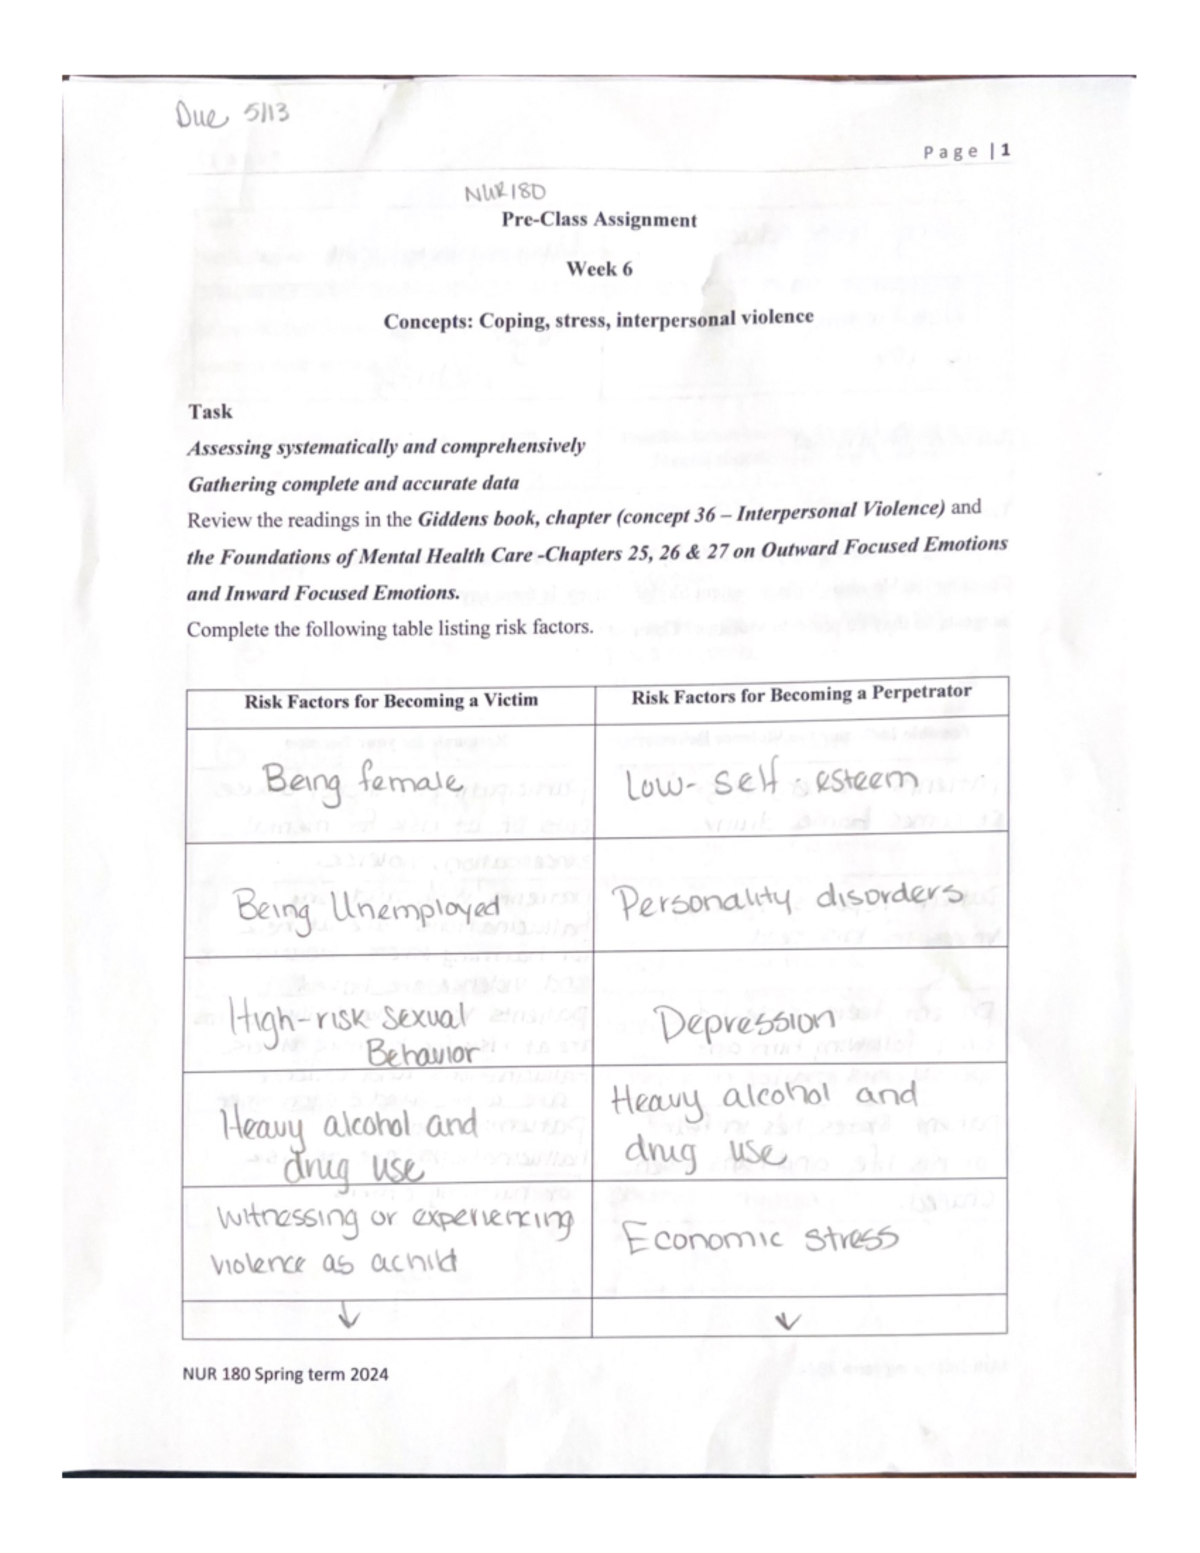 Due 5/13
Page | 1
NUR 180
Pre-Class Assignment
Week 6
Concepts: Coping, stress, interpersonal violence
Task
Assessing systematically and comprehensively
Gathering complete and accurate data
Review the readings in the Giddens book, chapter (concept 36 – Interpersonal Violence) and
the Foundations of Mental Health Care -Chapters 25, 26 & 27 on Outward Focused Emotions
and Inward Focused Emotions.
Complete the following table listing risk factors.
Risk Factors for Becoming a Victim
Risk Factors for Becoming a Perpetrator
Being female
Low-self-esteem
Being Unemployed
Personality disorders
High-risk Sexual
Behavior
Depression
Heavy alcohol and
drug use
Heavy alcohol and
drug use
Witnessing or experiencing
violence as a child
Economic stress
↓
↓
NUR 180 Spring term 2024